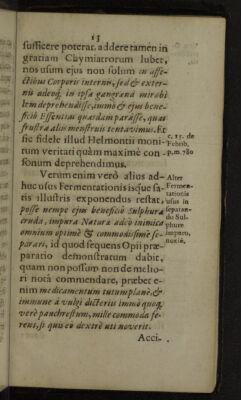 13
sufficere poterat, addere tamen in
gratiam Chymiatrorum lubet,
nos usum ejus non solum in affe-
ctibus Corporis internis, sed & exter-
nis adeoq; in ipsa gangræna mirabi
lem deprehendisse, immò & ejus bene-
ficiô Essentias quasdam parasse, quas
frustra aliis menstruis tentavimus. Et
sic fidele illud Helmontii moni-
tum veritati quàm maximè con-
sonum deprehendimus.
c. 15. de
Febrib.
p. m. 780
Verum enim verò alius ad-
huc usus Fermentationis isque sa-
tis illustris exponendus restat,
posse nempe ejus beneficiô Sulphura
cruda, impura Naturæ adeò inimica
omnium optimè & commodissimè se-
parari, id quod sequens Opii præ-
paratio demonstratum dabit,
quam non possum non de melio-
ri nota commendare, præbet e-
nim medicamentum tutum planè, &
immune à vulgi dicteriis immò quoq;
verè panchrestum, mille commoda fe-
rens, si quis eô dextrè uti noverit.
Alter
Fermen-
tationis
usus in
separan-
do Sul-
phure
impuro,
noxiè.
Acci-